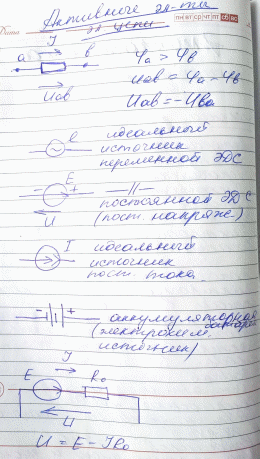 Активные эл-ты
эл. цепи
ПН ВТ СР ЧТ ПТ СБ ВС
I
a b
Uab
φa > φb
Uab = φa - φb
Uab = -Uba
e
идеальный
источник
переменной ЭДС
E
- +
U
—//—
постоянной ЭДС
(пост. напряж.)
I
идеальный
источник
пост. тока
- +
аккумуляторная
батарея
(электрохим.
источник)
I
E R₀
U
U = E - IR₀